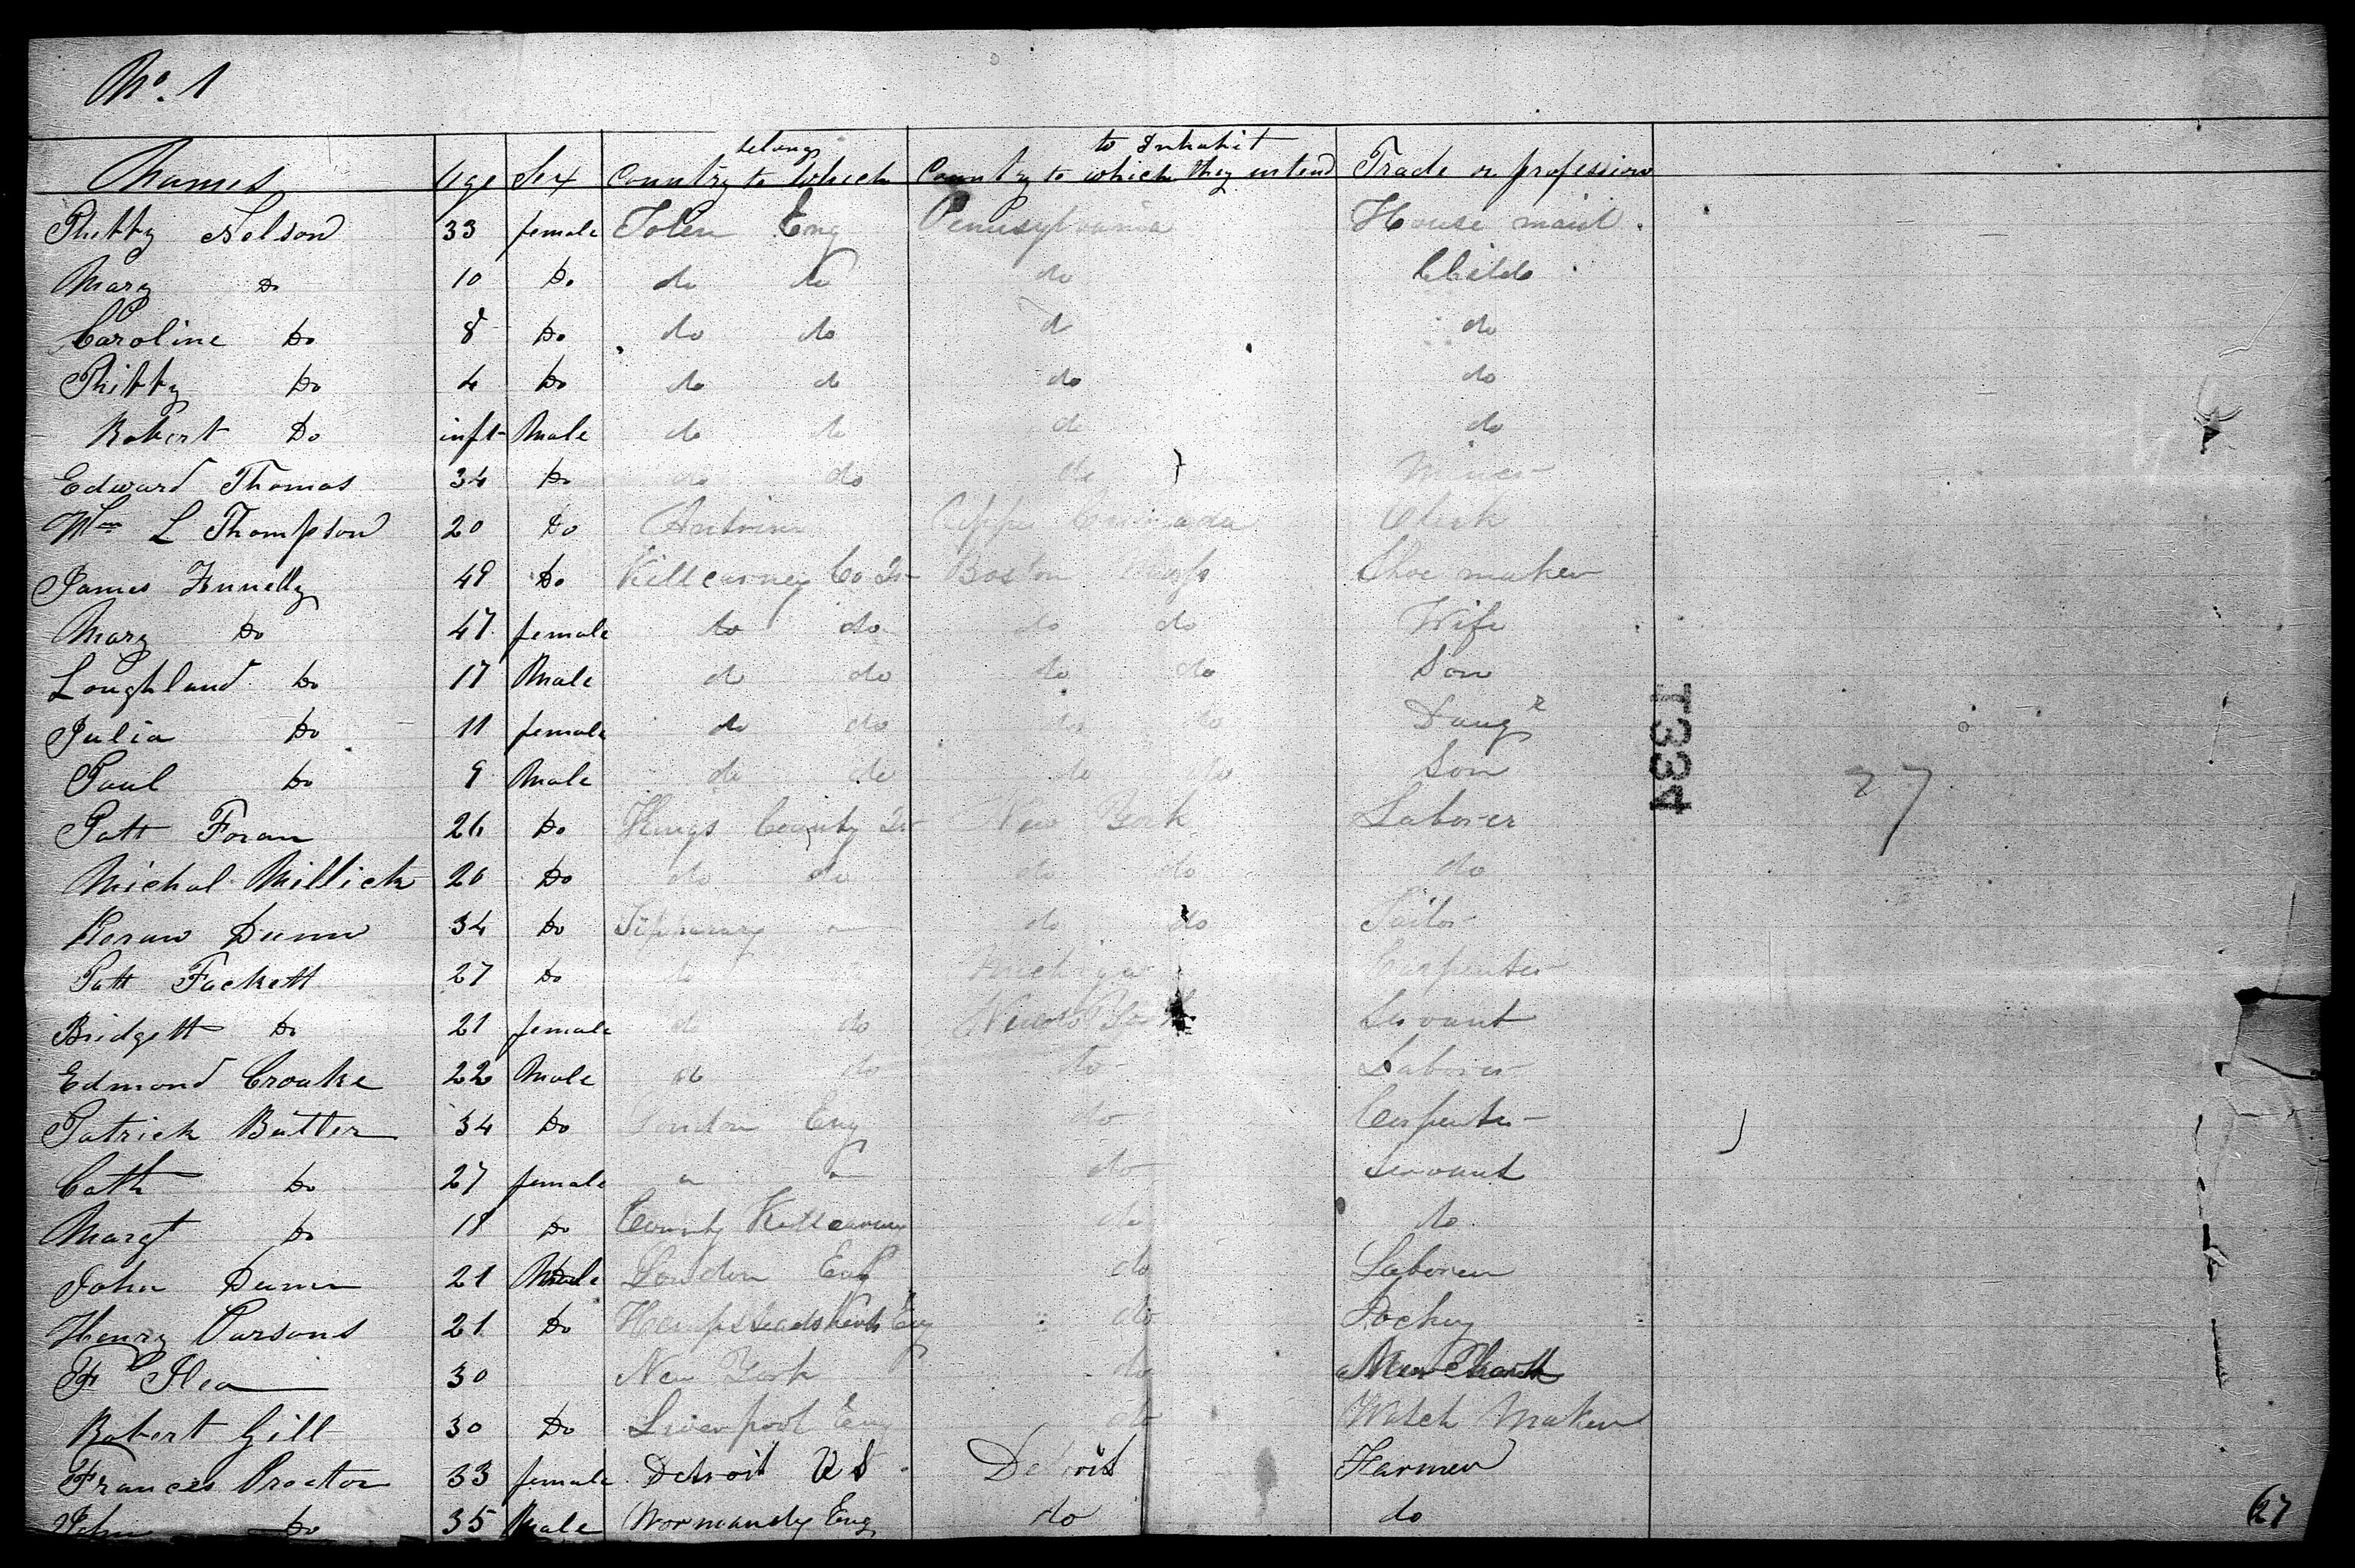 No. 1
Names Age Sex Country to which belong Country to which they intend to Inhabit Trade or profession
Phebby Nelson 33 female Eng Pennsylvania House maid
Mary Do 10 Do do do do Child
Caroline Do 8 Do do do d do
Phibby Do 4 Do do do do do
Robert Do inft Male do do do do
Edward Thomas 34 Do do do do Miner
Wm L Thompson 20 Do Antrim Canada Clerk
James 49 Do Killcarney Co Ir Boston Shoe maker
Mary Do 47 female do do do do Wife
Loughland Do 17 Male do do do do Son
Julia Do 11 female do do do do Daugr
Paul Do 9 Male do do do do Son
Patt Foran 26 Do Kings County Ir New York Laborer
Michal Millick 20 Do do do do do do
Dunn 34 Do Tipperary do do Tailor
Patt Fackett 27 Do do Michigan Carpenter
Bridgett Do 21 female do do New York Servant
Edmond Croake 22 Male do do do Laborer
Patrick Butler 34 Do London Eng do Carpenter
Cath Do 27 female do Servant
Margt Do 18 Do County do do
John Dunn 21 Male London Eng do Laborer
Henry Parsons 21 Do Eng do
F 30 New York do
Robert Gill 30 Do Liverpool Eng do Watch Maker
Frances Proctor 33 female Detroit US Detroit Farmer
John Do 35 Male Normandy Eng do do
T334
27
27